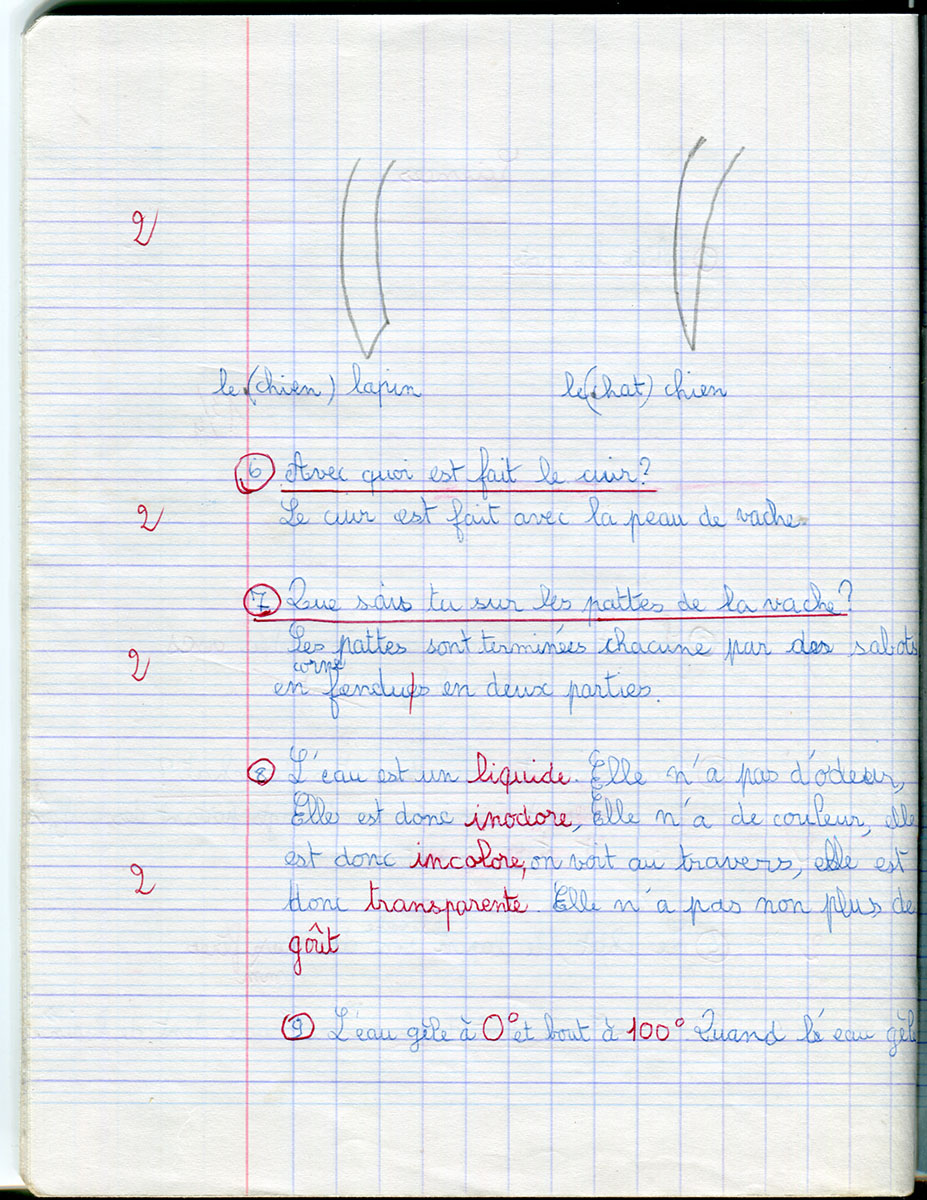 2
le (chien) lapin le (chat) chien
6 Avec quoi est fait le cuir?
2 Le cuir est fait avec la peau de vache.
7 Que sais tu sur les pattes de la vache?
2 Les pattes sont terminées chacune par des sabots
corne
en fendus en deux parties.
8 L'eau est un liquide. Elle n'a pas d'odeur,
Elle est donc inodore, Elle n'a de couleur, elle
est donc incolore, on voit au travers, elle est
2 donc transparente. Elle n'a pas non plus de
goût
9 L'eau gèle à 0° et bout à 100° Quand l'eau gèle